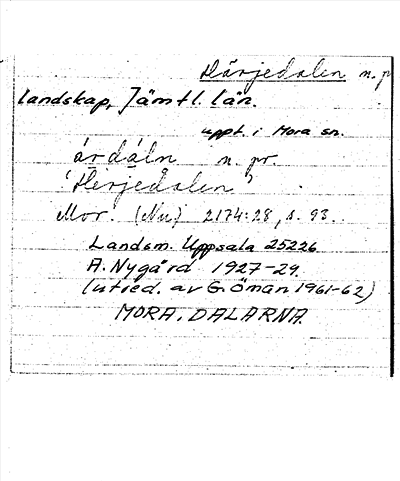 Härjedalen n. p
landskap, Jämtl. län.
uppt. i Mora sn.
árdáln n. pr.
'Herjedalen'
Mor. (Nu) 2174:28, s. 93.
Landsm. Uppsala 25226
A. Nygård 1927-29.
(utred. av G. Öman 1961-62)
MORA. DALARNA.